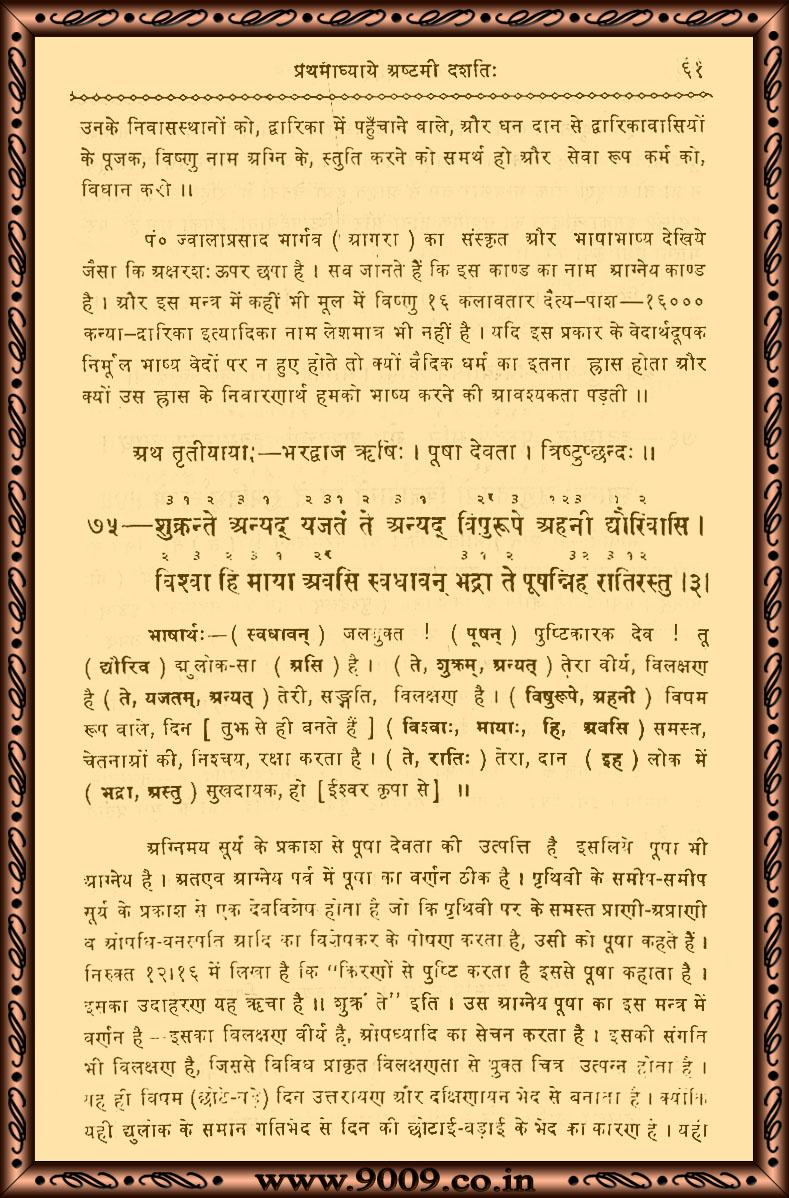 प्रथमाध्याये अष्टमी दशतिः ६१
उनके निवासस्थानों को, द्वारिका में पहुँचाने वाले, और धन दान से द्वारिकावासियों
के पूजक, विष्णु नाम अग्नि के, स्तुति करने को समर्थ हो और सेवा रूप कर्म को,
विधान करो ।।
पं० ज्वालाप्रसाद भार्गव ( आगरा ) का संस्कृत और भाषाभाष्य देखिये
जैसा कि अक्षरशः ऊपर छपा है । सब जानते हैं कि इस काण्ड का नाम आग्नेय काण्ड
है । और इस मन्त्र में कहीं भी मूल में विष्णु १६ कलावतार दैत्य–पाश—१६०००
कन्या–द्वारिका इत्यादिका नाम लेशमात्र भी नहीं है । यदि इस प्रकार के वेदार्थदूषक
निर्मूल भाष्य वेदों पर न हुए होते तो क्यों वैदिक धर्म का इतना ह्रास होता और
क्यों उस ह्रास के निवारणार्थ हमको भाष्य करने की आवश्यकता पड़ती ।।
अथ तृतीयायाः—भरद्वाज ऋषिः । पूषा देवता । त्रिष्टुप्छन्दः ।।
३ १ २ ३ १ २ ३१ २ ३ १ २र ३ १२३ १ २
७५—शुक्रन्ते अन्यद् यजतं ते अन्यद् विषुरूपे अहनी द्यौरिवासि ।
२ ३ २ ३ १ २र ३ १ २ ३२ ३ १ २
विश्वा हि माया अवसि स्वधावन् भद्रा ते पूषन्निह रातिरस्तु ।३।
भाषार्थः—( स्वधावन् ) जलयुक्त ! ( पूषन् ) पुष्टिकारक देव ! तू
( द्यौरिव ) द्युलोक-सा ( असि ) है । ( ते, शुक्रम्, अन्यत् ) तेरा वीर्य, विलक्षण
है ( ते, यजतम्, अन्यत् ) तेरी, सङ्गति, विलक्षण है । ( विषुरूपे, अहनी ) विषम
रूप वाले, दिन [ तुझ से ही बनते हैं ] ( विश्वाः, मायाः, हि, अवसि ) समस्त,
चेतनाओं की, निश्चय, रक्षा करता है । ( ते, रातिः ) तेरा, दान ( इह ) लोक में
( भद्रा, अस्तु ) सुखदायक, हो [ईश्वर कृपा से] ।।
अग्निमय सूर्य के प्रकाश से पूषा देवता की उत्पत्ति है इसलिये पूषा भी
आग्नेय है । अतएव आग्नेय पर्व में पूषा का वर्णन ठीक है । पृथिवी के समीप-समीप
सूर्य के प्रकाश से एक देवविशेष होता है जो कि पृथिवी पर के समस्त प्राणी-अप्राणी
व ओषधि-वनस्पति आदि का विशेषकर के पोषण करता है, उसी को पूषा कहते हैं ।
निरुक्त १२।१६ में लिखा है कि “किरणों से पुष्टि करता है इससे पूषा कहाता है ।
इसका उदाहरण यह ऋचा है ।। शुक्रं ते” इति । उस आग्नेय पूषा का इस मन्त्र में
वर्णन है -- इसका विलक्षण वीर्य है, ओषध्यादि का सेचन करता है । इसकी संगति
भी विलक्षण है, जिससे विविध प्राकृत विलक्षणता से युक्त चित्र उत्पन्न होता है ।
यह ही विषम (छोटे-बड़े) दिन उत्तरायण और दक्षिणायन भेद से बनाता है । क्योंकि
यही द्युलोक के समान गतिभेद से दिन की छोटाई-बड़ाई के भेद का कारण है । यहां
www.9009.co.in